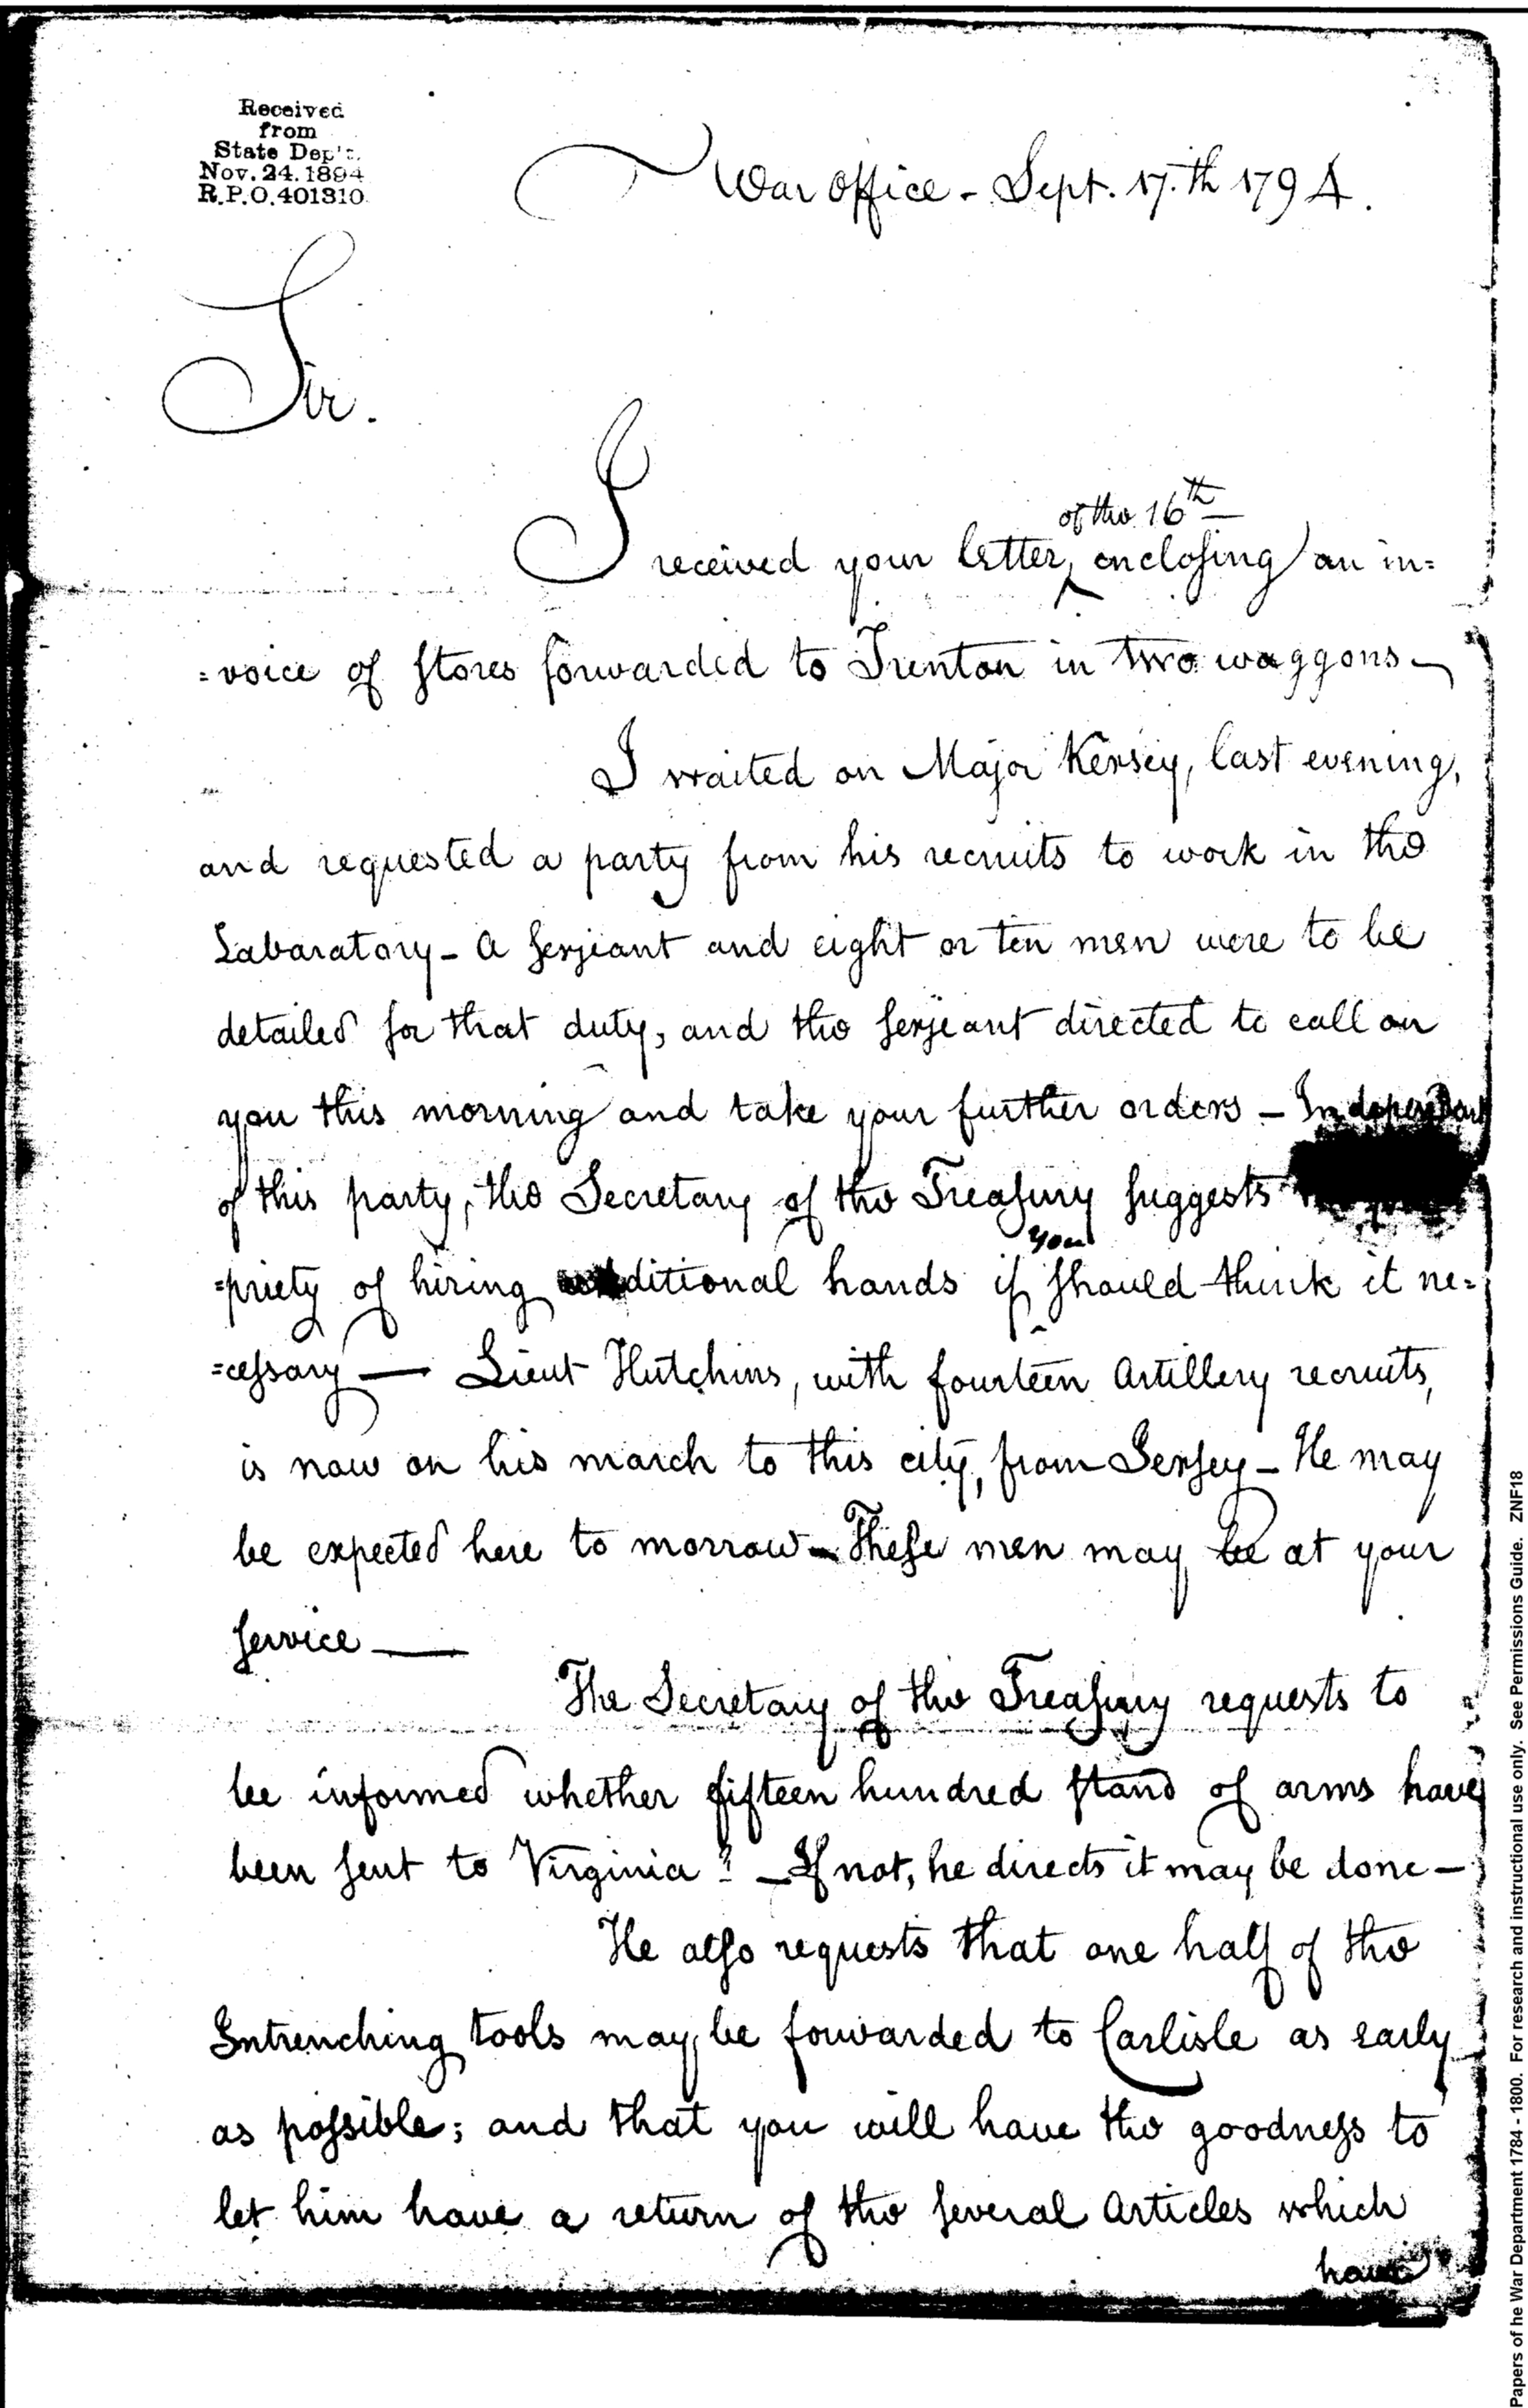 Received
from
State Dep't.
Nov. 24. 1894
R.P.O. 401310.
War office - Sept. 17.th 1794.
Sir.
of the 16th
I received your letter, enclosing an in=
=voice of stores forwarded to Trenton in two waggons -
I waited on Major Kersey, last evening,
and requested a party from his recruits to work in the
Labaratory - A serjeant and eight or ten men were to be
detailed for that duty, and the serjeant directed to call on
you this morning and take your further orders - Independant
of this party, the Secretary of the Treasury suggests
you
=priety of hiring additional hands if should think it ne=
=cessary — Lieut Hutchins, with fourteen Artillery recruits,
is now on his march to this city, from Jersey - He may
be expected here to morrow - These men may be at your
service —
The Secretary of the Treasury requests to
be informed whether fifteen hundred stand of arms have
been sent to Virginia? - If not, he directs it may be done -
He also requests that one half of the
Intrenching tools may be forwarded to Carlisle as early
as possible; and that you will have the goodness to
let him have a return of the several Articles which
have
Papers of he War Department 1784 - 1800. For research and instructional use only. See Permissions Guide. ZNF18